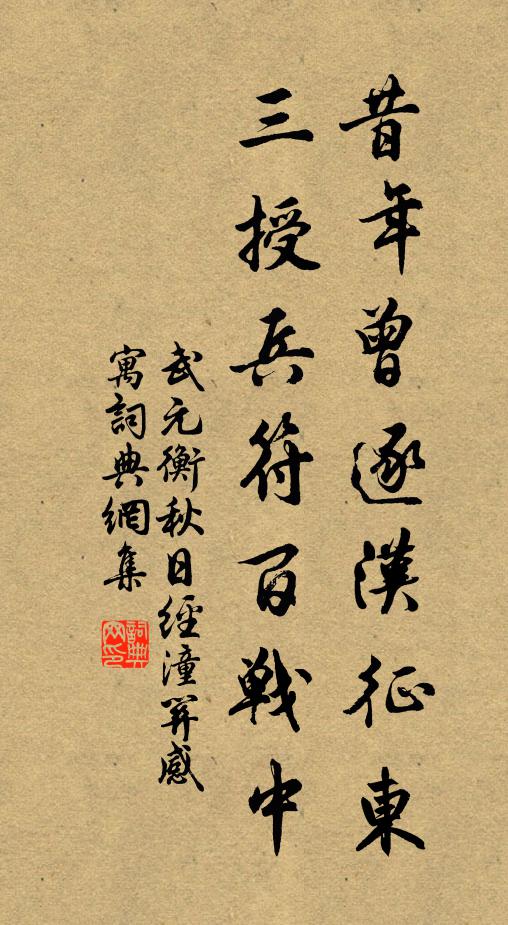 昔年曾逐漢征東
三授兵符百戰中
武元衡秋日經潼關感
寓詞典網集
詞典
網印